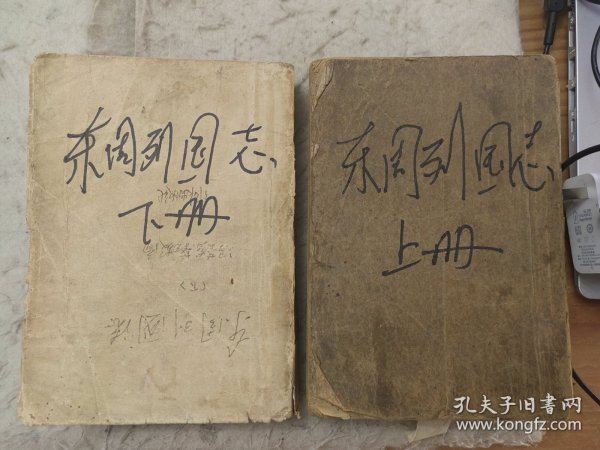 东周列国志
下册
(下)
东周列国志
上册
孔夫子旧书网
www.kongfz.com